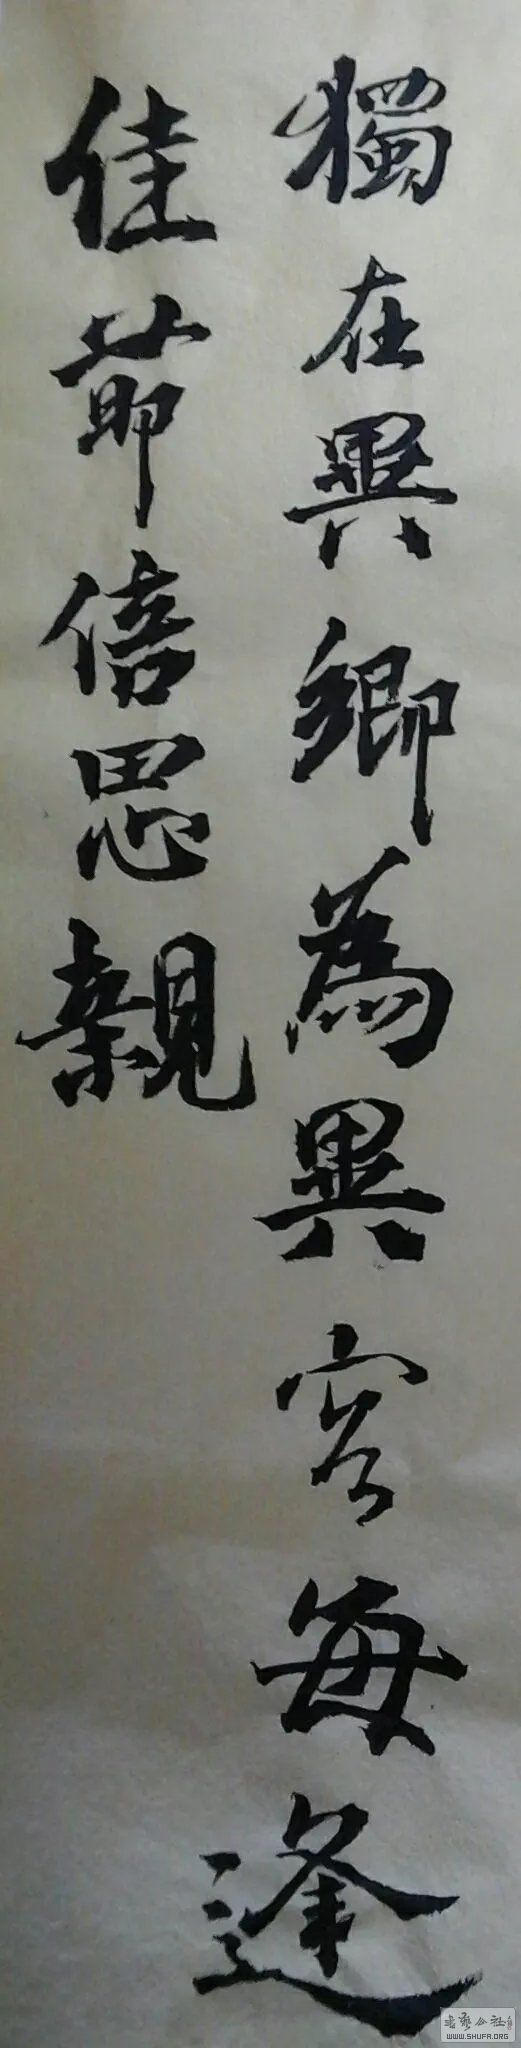 獨在異鄉為異客每逢
佳節倍思親
書藝公社
WWW.SHUFA.ORG